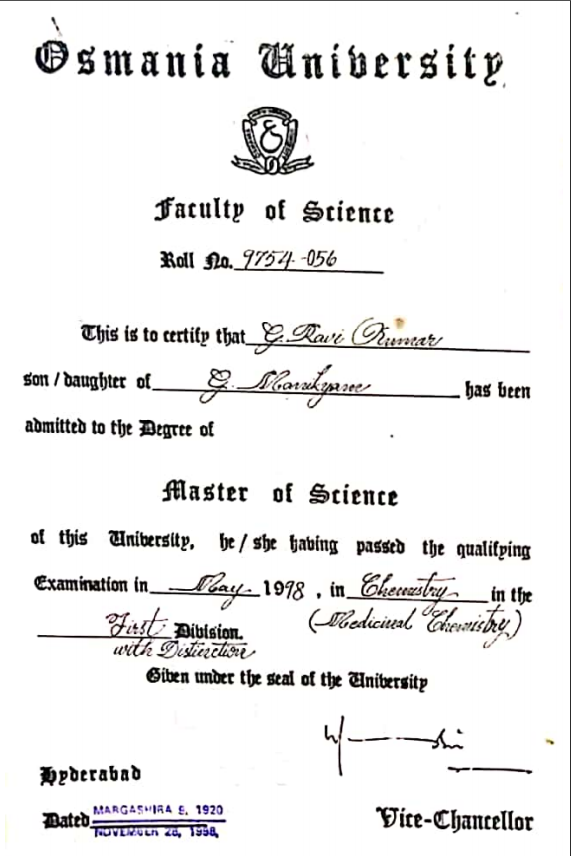 Osmania University
Faculty of Science
Roll No. 9754-056
This is to certify that G. Ravi Kumar
son / daughter of G. Manikyam has been
admitted to the Degree of
Master of Science
of this University, he / she having passed the qualifying
Examination in May 1998 , in Chemistry in the
First Division. (Medicinal Chemistry)
with Distinction
Given under the seal of the University
Hyderabad
Dated MARGASHIRA 5, 1920
NOVEMBER 26, 1998,
Vice-Chancellor